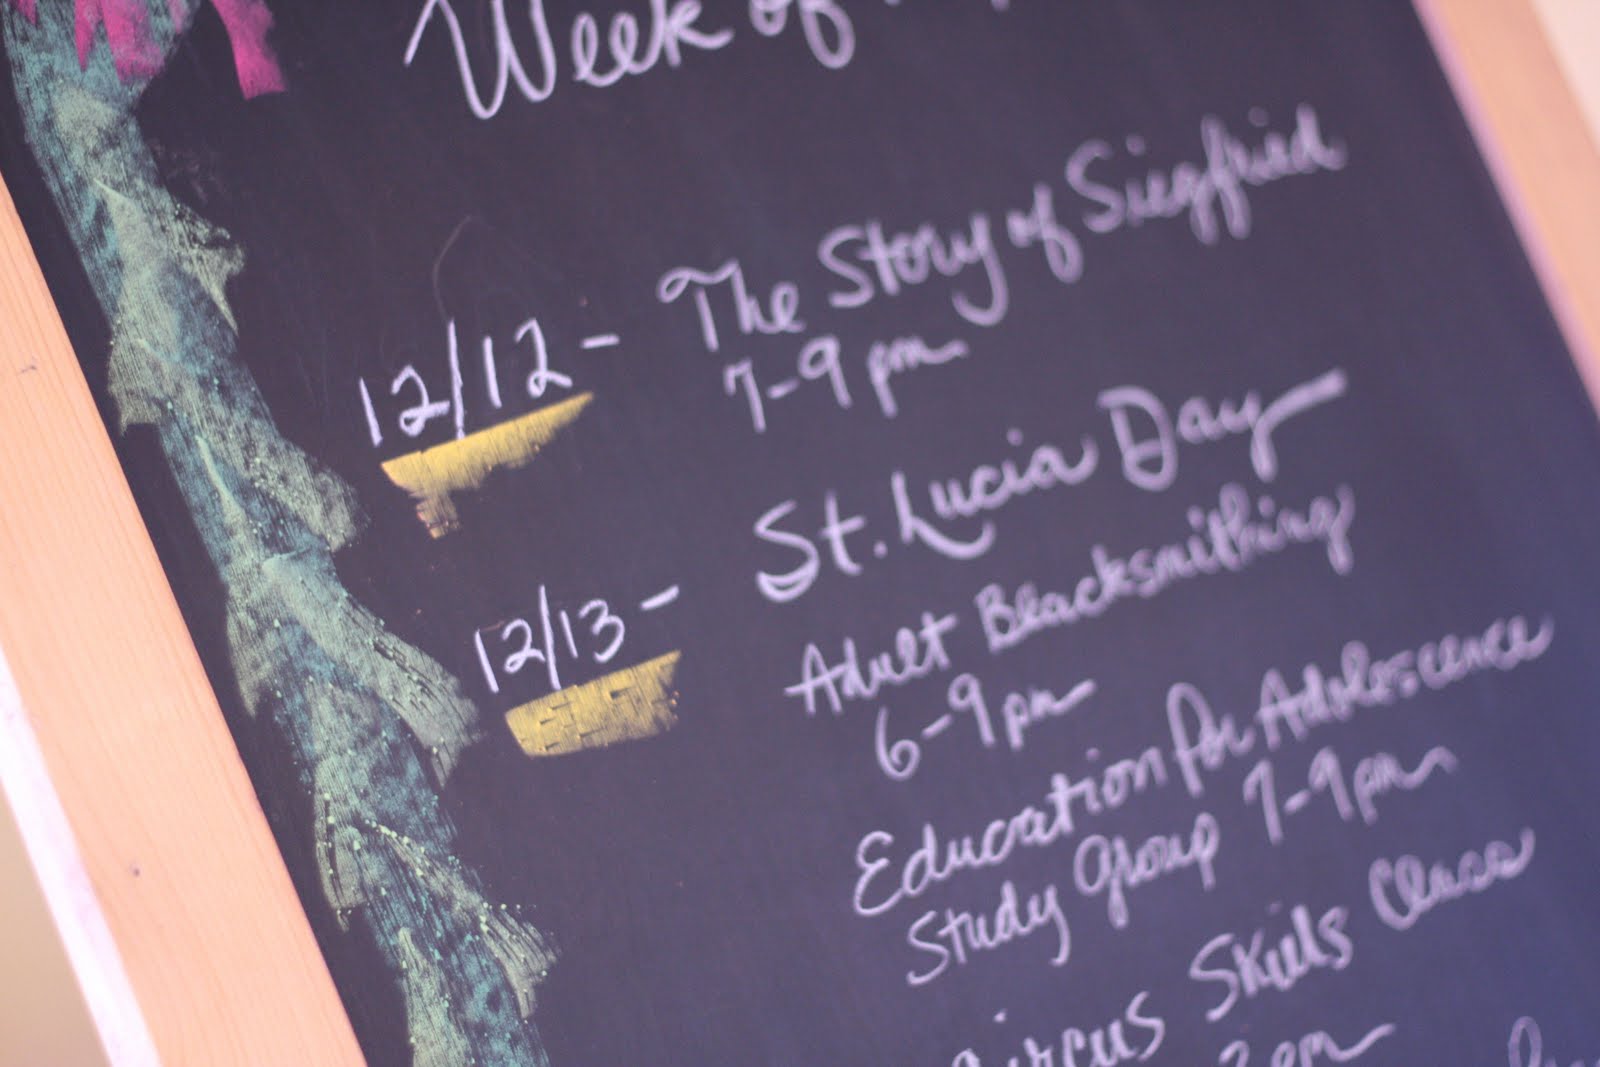 Week of
12/12 - The Story of Siegfried
7-9 pm
12/13 - St. Lucia Day
Adult Blacksmithing
6-9pm
Education for Adolescence
Study Group 7-9pm
Circus Skills Class
pm